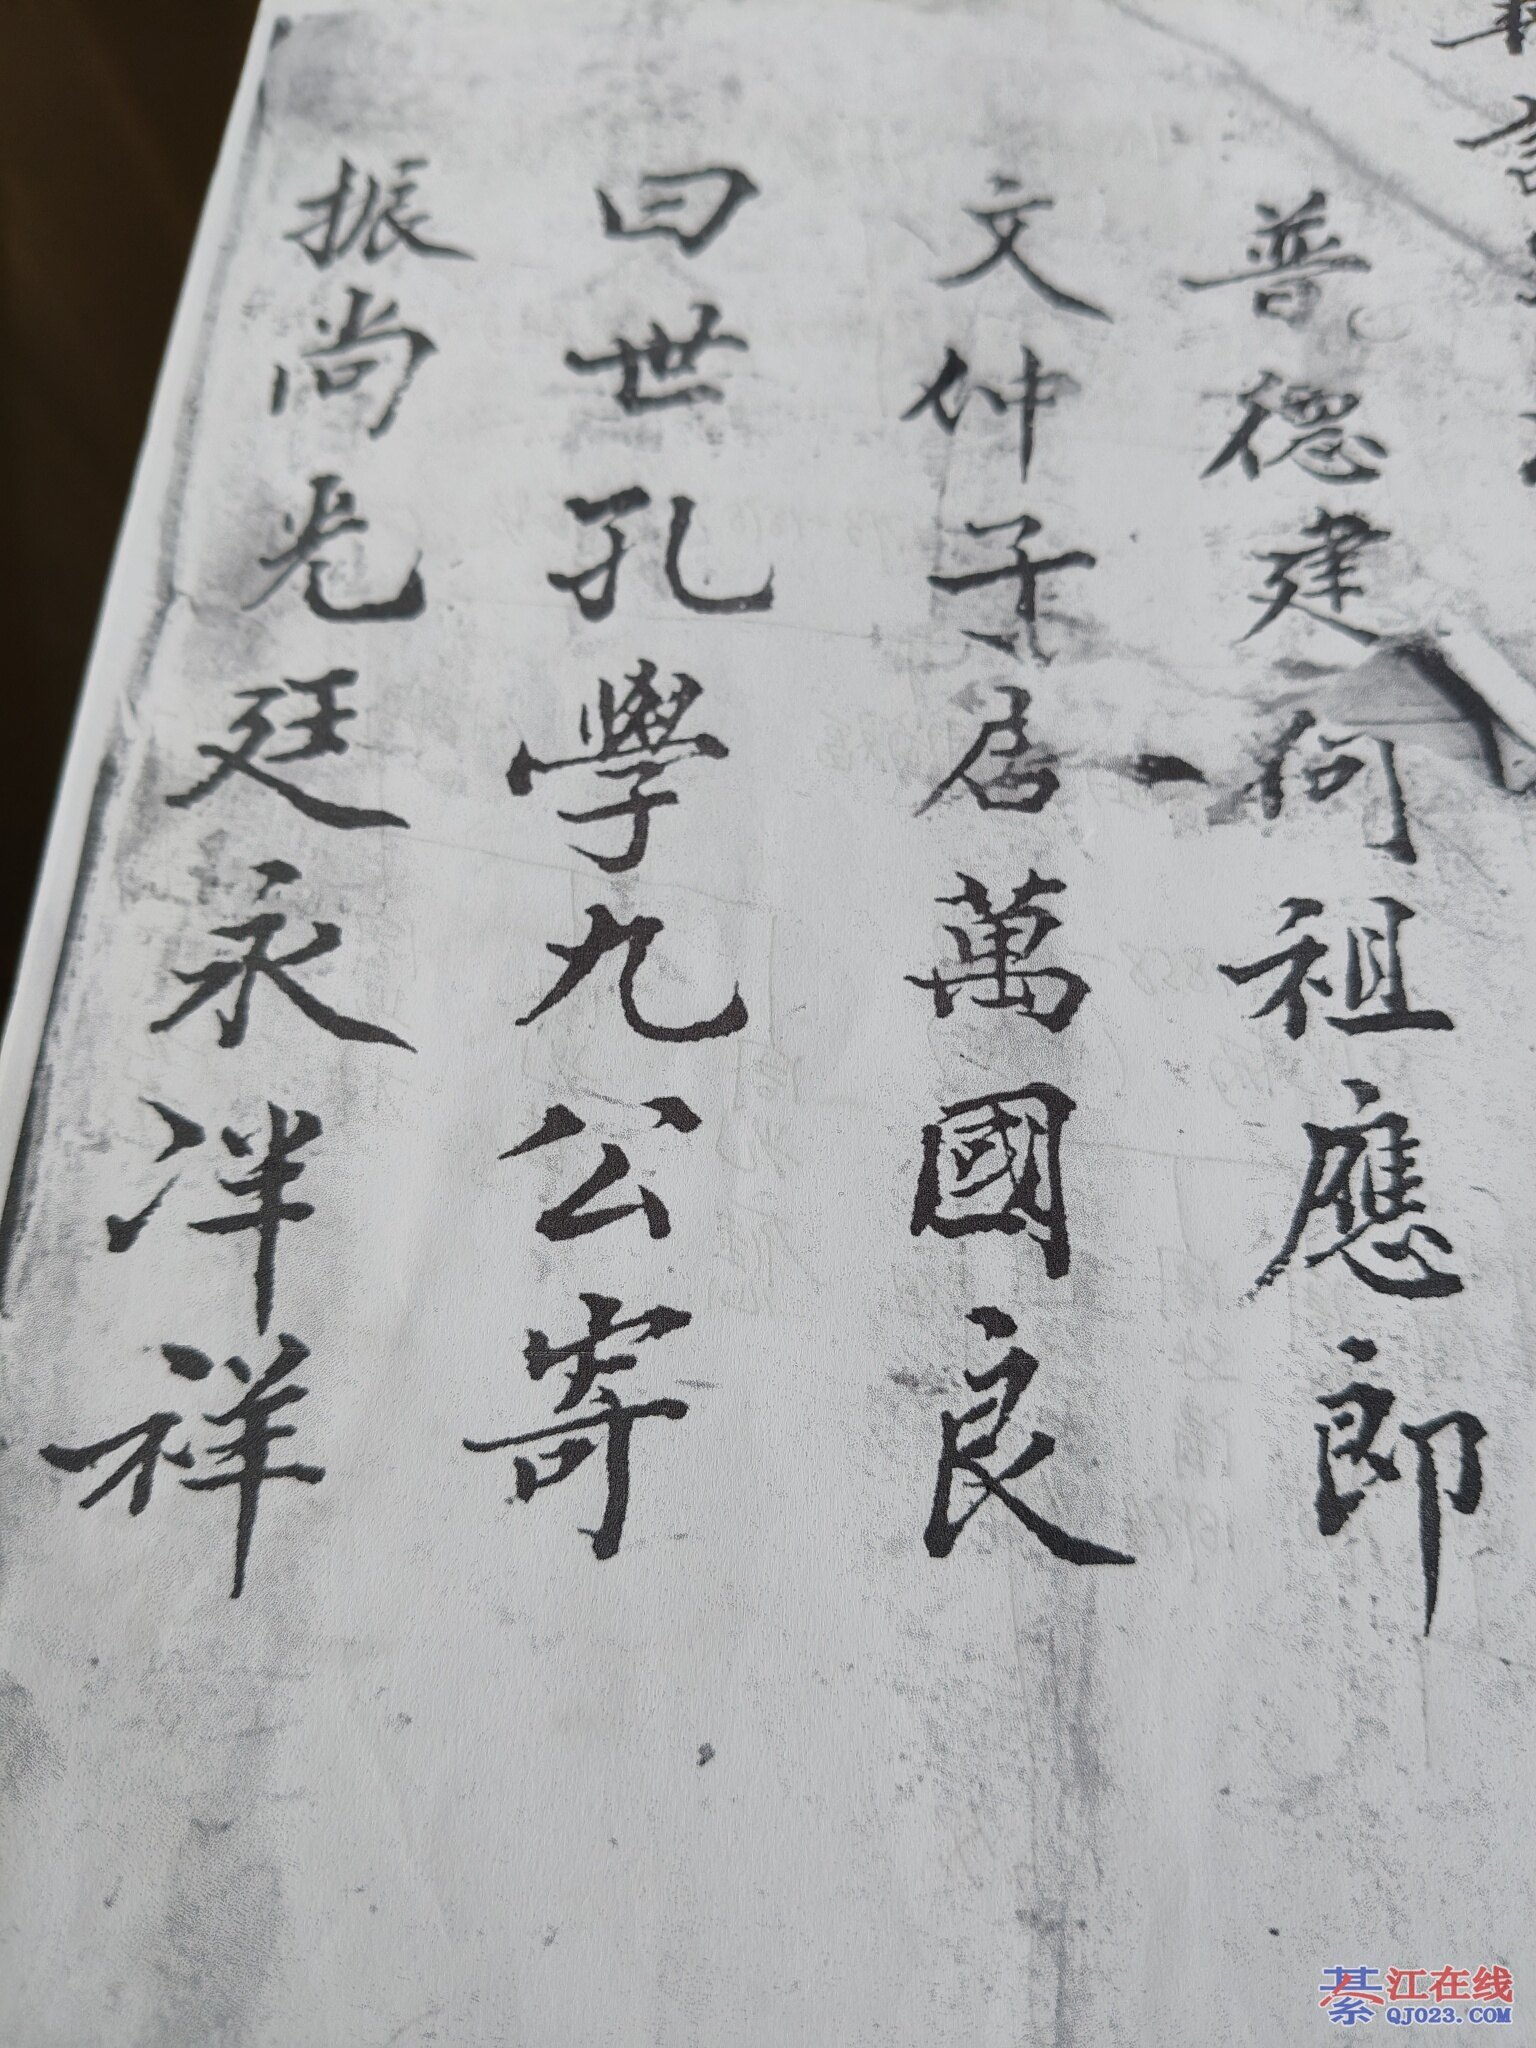 普德建何祖應郎
文仲子居萬國良
曰世孔學九公寄
振尚光廷永泮祥
綦江在线
QJ023.COM